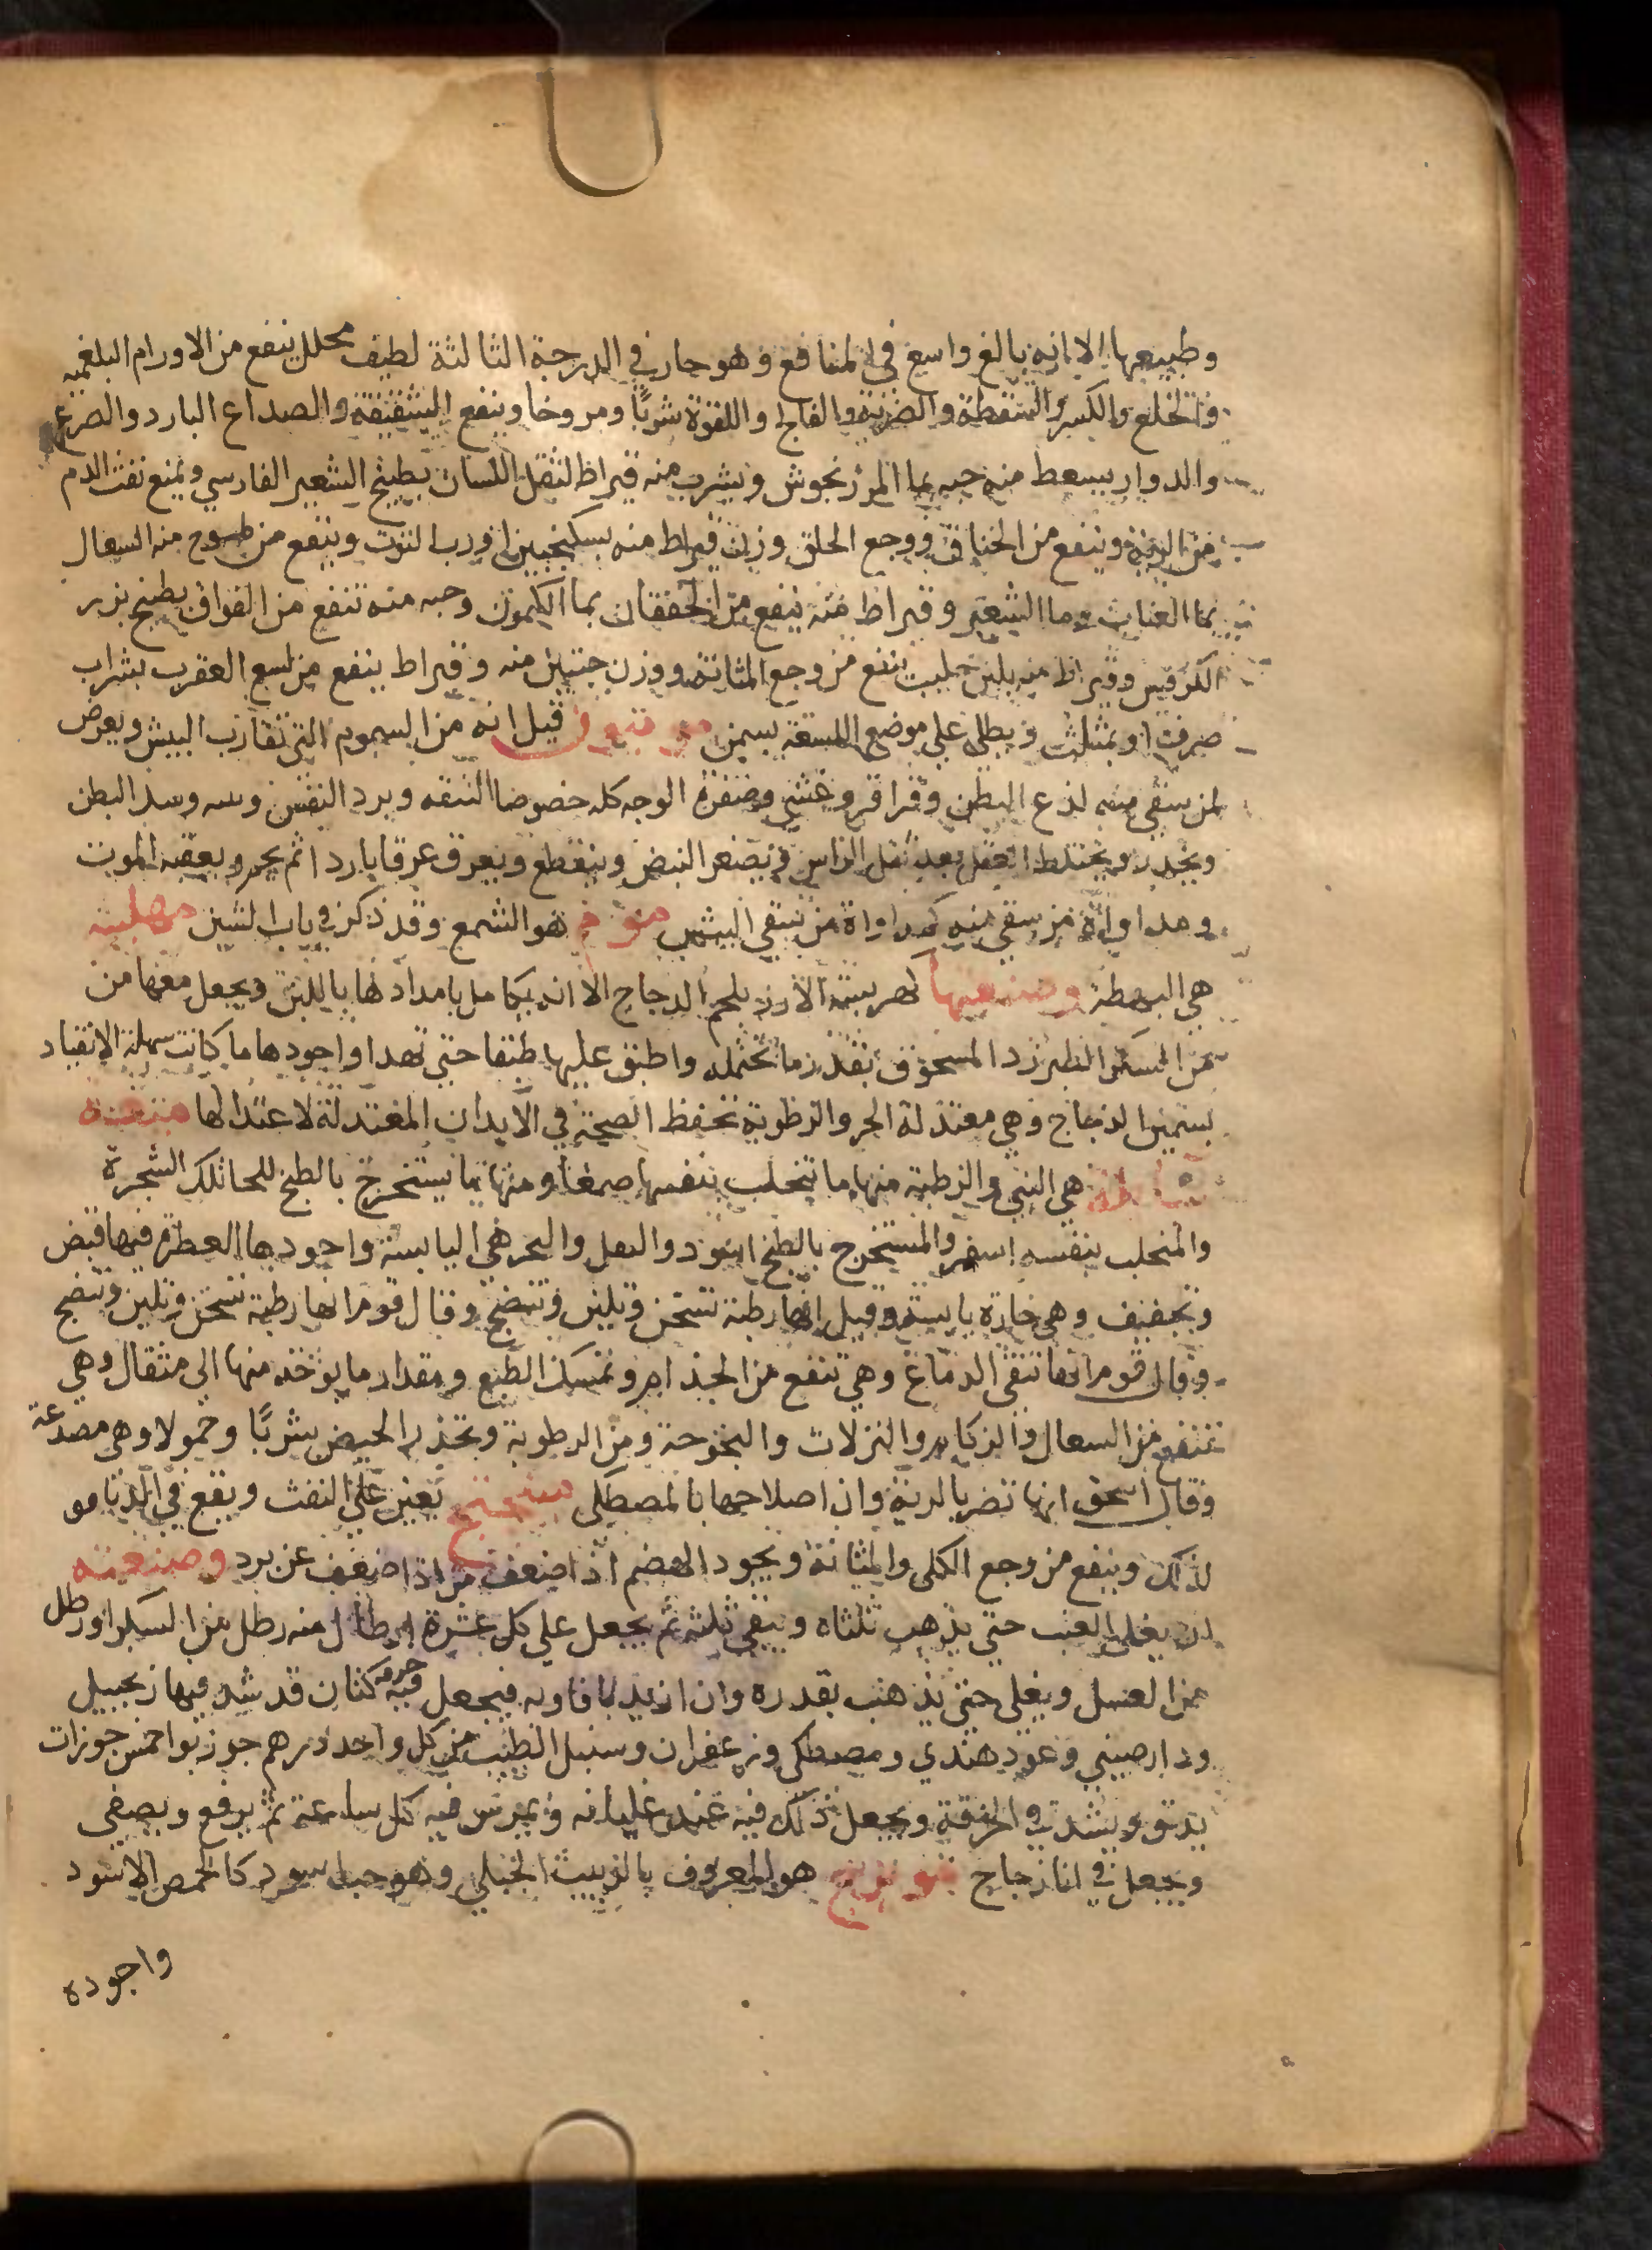 وطبيعها الا انه بالغ واسع في المنافع وهو حار في الدرجة الثالثة لطيف محلل ينفع من الاورام البلغميه
والخلع والكسر والسقطة والضربة والفالج واللقوة شربًا ومروخا وينفع الشقيقة والصداع البارد والصرع
والدوار يسعط منه حبه بما المرزنجوش ويشرب منه قيراط لثقل اللسان بطبيخ الشعير الفارسي ويمنع نفث الدم
من الرية وينفع من الخناق ووجع الحلق وزن قيراط منه بسكنجبين او رب التوت وينفع من منه السعال
بما العناب وما الشعير وقيراط منه ينفع من الخفقان بما الكمون وحبه منه تنفع من الفواق بطبيخ بزر
الكرفس وقيراط منه بلبن حليب ينفع من وجع المثانة ووزن حبتين منه وقيراط ينفع من لسع العقرب بشراب
صرف او بمثلث ويطلى علي موضع اللسعة بسمن قيل انه من السموم التي تقارب البيش ويعرض
لمن سقي منه لذع البطن وقراقر وغشي وصفرة الوجه كله خصوصا الشفه وبرد النفس البطن
ويخدر ويختلط العقل بعد ثقل الراس ويصغر النبض وينقطع ويعرق عرقا باردا ثم يحمر ويعقبه الموت
ومداواة من سقي منه كمداواة من سقي البيش موم هو الشمع وقد ذكر في باب الشين مهلبيه
هي البهطة وصنعتها كهريسة الارز بلحم الدجاج الا انه بامدادها باللبن ويجعل معها من
من السكر الطبرزد المسحوق بقدر ما تحتمله واطبق عليها طبقا حتى تهدا واجودها ما كانت سهلة الانقياد
بسمين الدجاج وهي معتدلة الحر والرطوبة تحفظ الصحة في الابدان المعتدلة لاعتدالها ميعة
هي البني والرطبة منها ما يتحلب بنفسه صمغا ومنها ما يستخرج بالطبخ للحا تلك الشجرة
والمتحلب بنفسه اصفر والمستخرج بالطبخ اسود والثفل هي اليابسة واجودها العطرة فيها قبض
وتجفيف وهي حارة يابسة وقيل انها رطبة تسخن وتلين وتنضج وقال قوم انها رطبة تسخن وتلين وتنضج
وقال قوم انها تنقي الدماغ وهي تنفع من الجذام وتمسك الطبع ومقدار ما يوخذ منها الى مثقال وهي
تنفع من السعال والزكام والنزلات والبحوحة ومن الرطوبة وتحدر الحيض شربًا وحمولا وهي مصدعة
وقال اسحق انها تضر بالرية وان اصلاحها بالمصطكى ميبختج تعين على النفث ويقع في
لذلك وينفع من وجع الكلى والمثانة ويجود الهضم اذا ضعف عن برد وصنعته
ان يغلى العنب حتى يذهب ثلثاه ويبقى ثلثه ثم يجعل علي كل عشرة ارطال منه رطل من السكر او رطل
من العسل ويغلى حتى يذهب بقدره وان اريد بافاويه فيجعل فيه كتان قد شد فيها زنجبيل
ودارصيني وعود هندي ومصطكى وزعفران وسنبل الطيب من كل واحد درهم جوز بوا خمس جوزات
يدق ويشد في الخرقة ويجعل ذلك فيه عند غليانه ويمرس فيه كل ساعة ثم يرفع ويصفى
ويجعل في انا زجاج هو المعروف بالزبيب الجبلي وهو حب اسود كالحمص الاسود
واجوده